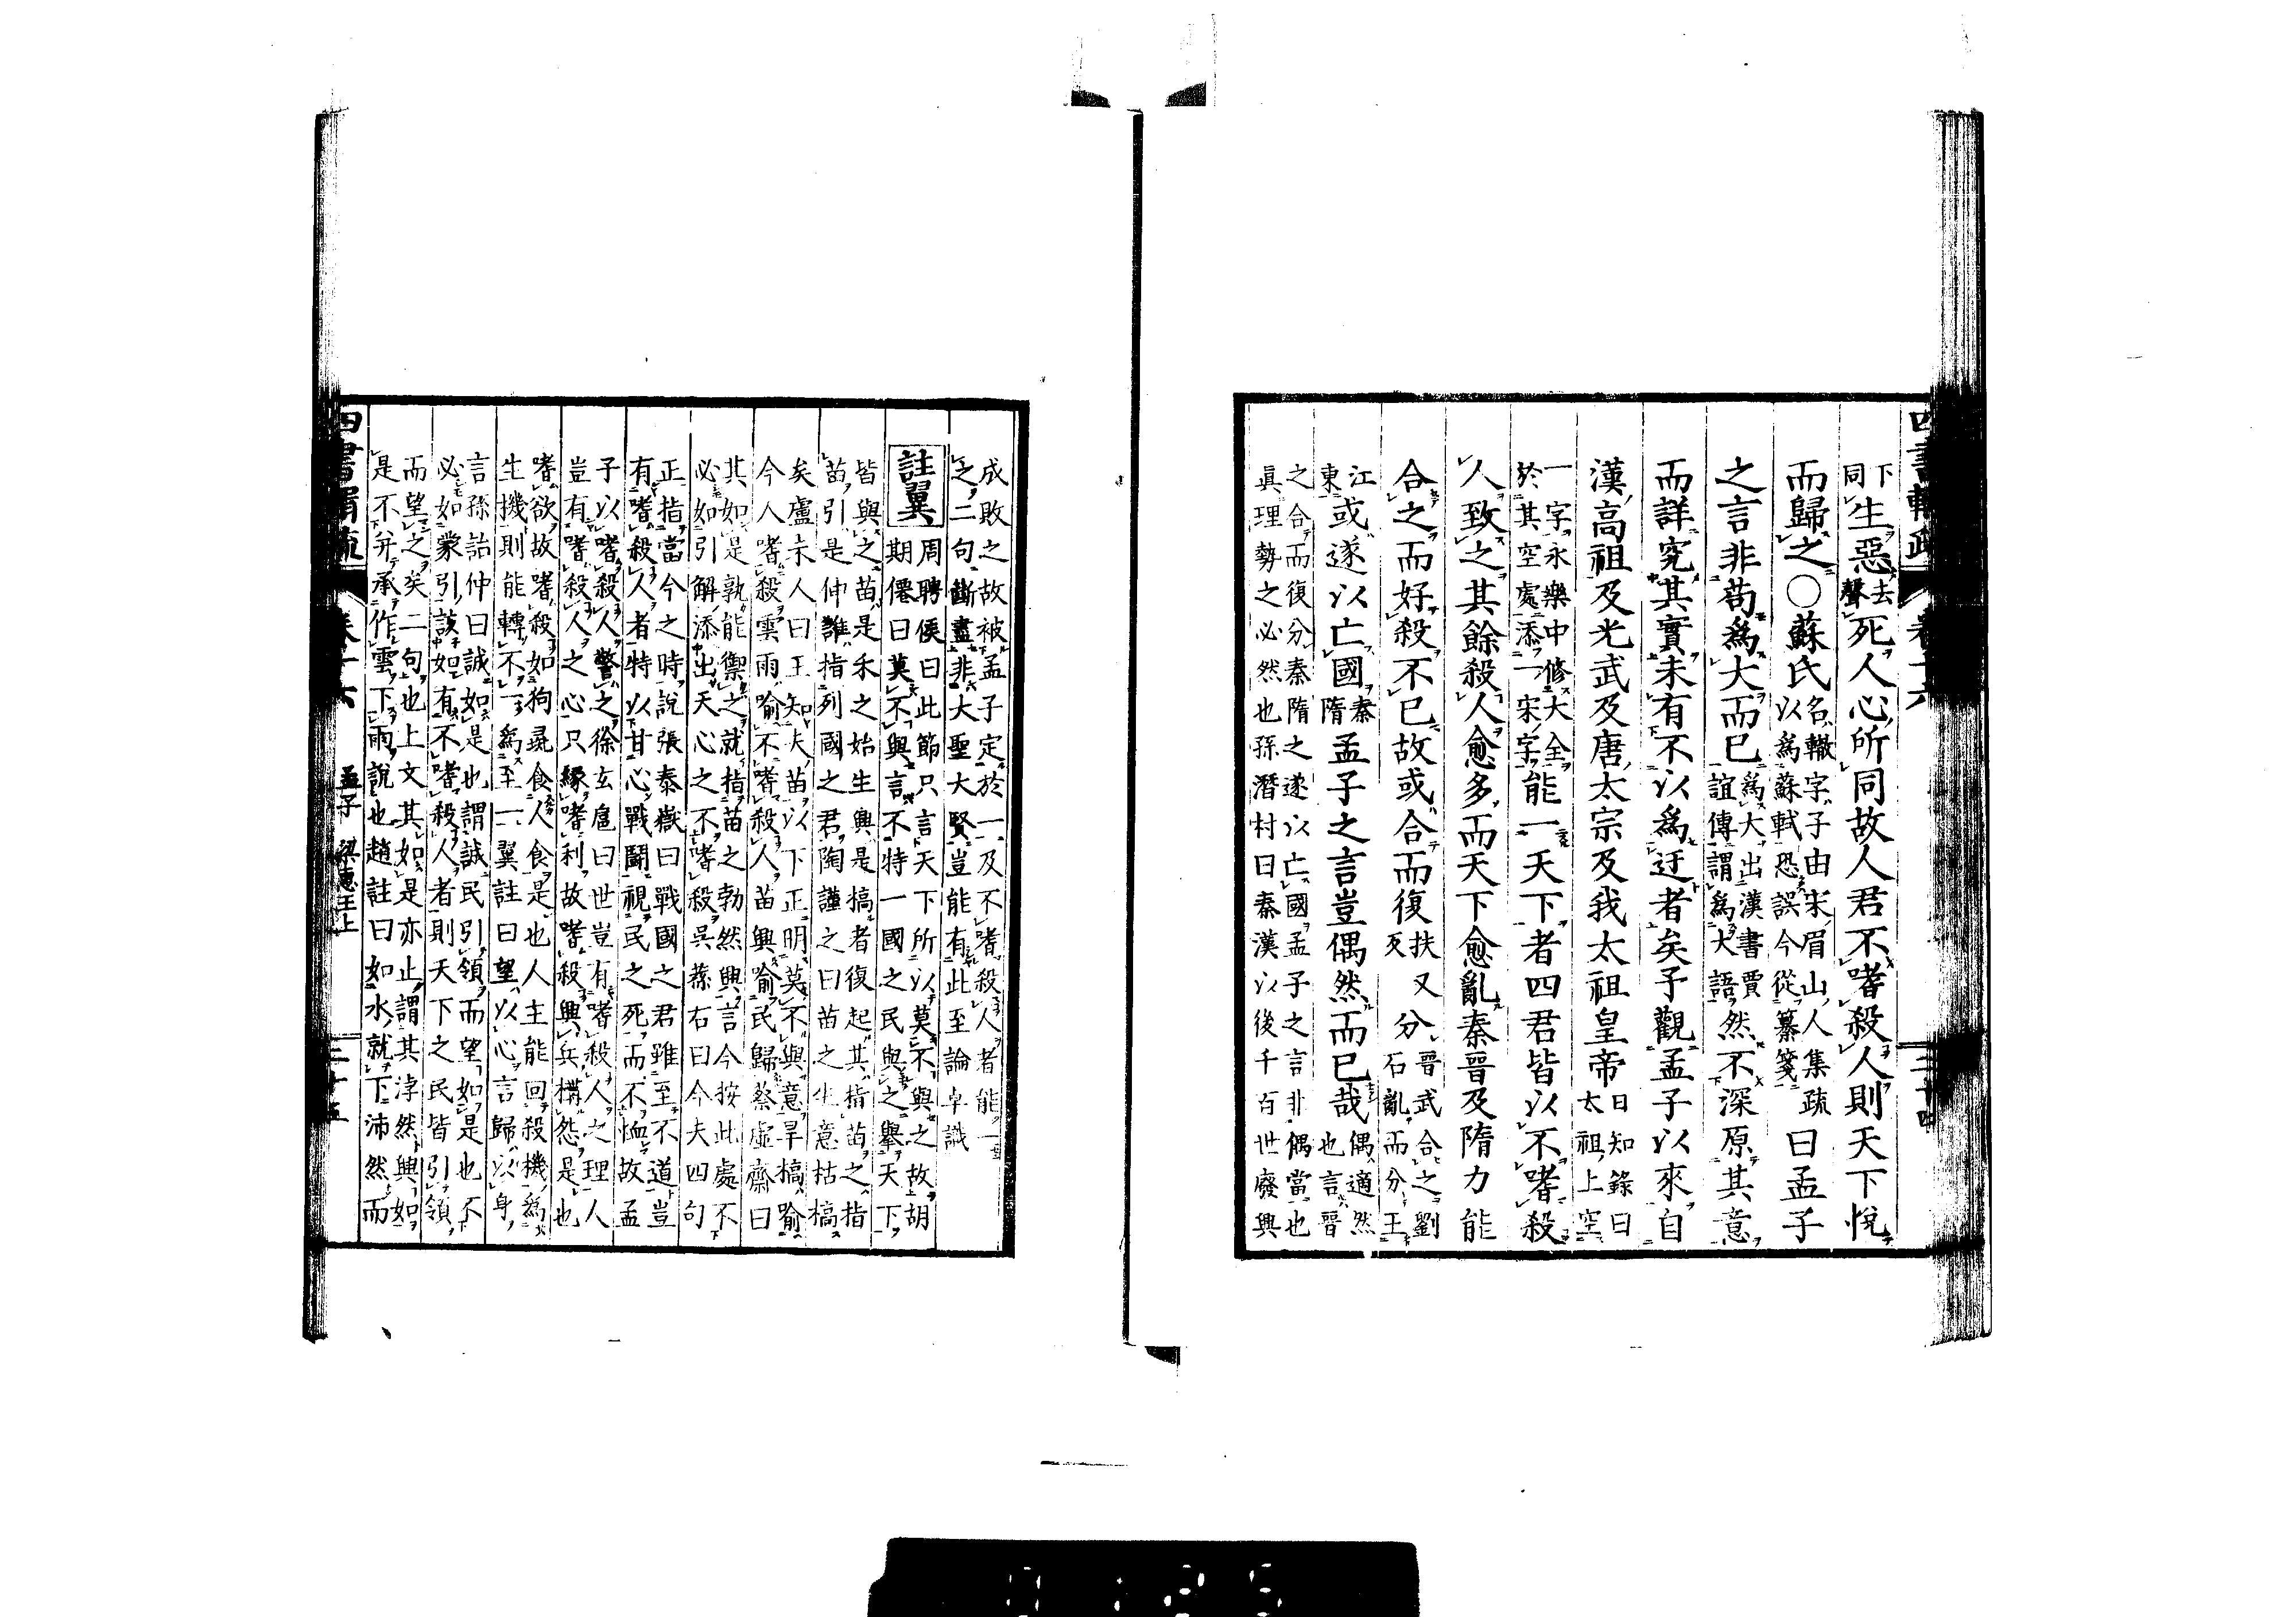 四書輯疏 卷十六 三十四
下同生惡去聲死人心所同故人君不嗜殺人則天下悅
而歸之○蘇氏名轍字子由宋眉山人集疏以爲蘇軾恐誤今從纂箋曰孟子
之言非苟爲大而已爲大出漢書賈誼傳謂爲大語然不深原其意
而詳究其實未有不以爲迂者矣予觀孟子以來自
漢高祖及光武及唐太宗及我太祖皇帝日知錄曰太祖上空
一字永樂中修大全於其空處添一宋字能一天下者四君皆以不嗜殺
人致之其餘殺人愈多而天下愈亂秦晉及隋力能
合之而好殺不已故或合而復扶又反分晉武合之劉石亂而分王
江東或遂以亡國秦隋孟子之言豈偶然而已哉偶適然也言晉
之合而復分秦隋之遂以亡國孟子之言非偶當也
眞理勢之必然也孫潛村曰秦漢以後千百世廢興
成敗之故被孟子定於一及不嗜殺人者能一
之二句斷盡非大聖大賢豈能有此至論卓識
註翼 周聘侯曰此節只言天下所以莫不與之故胡
期僊曰莫不與言不特一國之民與之舉天下
皆與之苗是禾之始生興是槁者復起其指苗之指
苗引是伸誰指列國之君陶謹之曰苗之生意枯槁
矣盧未人曰王知夫苗以下正明莫不與意旱槁喻
今人嗜殺雲雨喻不嗜殺人苗興喻民歸蔡虛齋曰
其如是孰能禦之就指苗之勃然興言今按此處不
必如引解添出天心之不嗜殺吳蓀右曰今夫四句
正指當今之時說張泰嶽曰戰國之君雖至不道豈
有嗜殺人者特以甘心戰鬪視民之死而不恤故孟
子以嗜殺人警之徐玄扈曰世豈有嗜殺人之理人
豈有嗜殺人之心只緣嗜利故嗜殺興兵構怨是也
嗜欲故嗜殺如狗彘食人食是也人主能回殺機爲
生機則能轉不一爲至一翼註曰望以心言歸以身
言孫詒仲曰誠如是也謂誠民引領而望如是也不
必如蒙引該如有不嗜殺人者則天下之民皆引領
而望之矣二句也上文其如是亦止謂其浡然興如
是不幷承作雲下雨說也趙註曰如水就下沛然而
四書輯疏 卷十六 孟子 梁惠王上 三十五